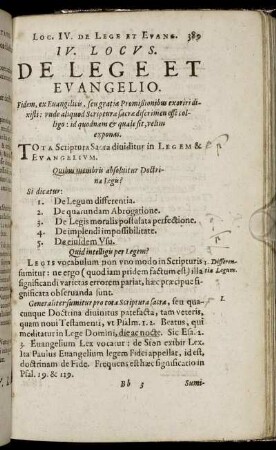 Loc. IV. de Lege et Evang. 389
IV. LOCVS.
DE LEGE ET
EVANGELIO.
Fidem, ex Euangelio, seu gratiæ Promissionibus exoriri di-
xisti: vnde aliquod Scripturæ sacræ discrimen est col-
ligo: id quodnam & quale sit, velim
exponas.
TOTA Scriptura Sacra diuiditur in LEGEM &
EVANGELIVM.
Quibus membris absoluitur Doctri-
na Legis?
Si dicatur:
1. De Legum differentia.
2. De quarundam Abrogatione.
3. De Legis moralis postulata perfectione.
4. De implendi impossibilitate.
5. De eiusdem Vsu.
Quid intelligis per Legem?
LEGIS vocabulum non vno modo in Scripturis
sumitur: ne ergo (quod iam pridem factum est) illa
significandi varietas errorem pariat, hæc præcipue si-
gnificata obseruanda sunt.
1. Differen-
tia Legum.
Generaliter sumitur pro tota Scriptura sacra, seu qua-
cunque Doctrina diuinitus patefacta, tam veteris,
quam noui Testamenti, vt Psalm. 1. 2. Beatus, qui
meditatur in Lege Domini, die ac nocte. Sic Esa. 2.
3. Euangelium Lex vocatur: de Sion exibit Lex.
Ita Paulus Euangelium legem Fidei appellat, id est,
doctrinam de Fide. Frequens est hæc significatio in
Psal. 19. & 119.
1.
Bb 3 Sumi-